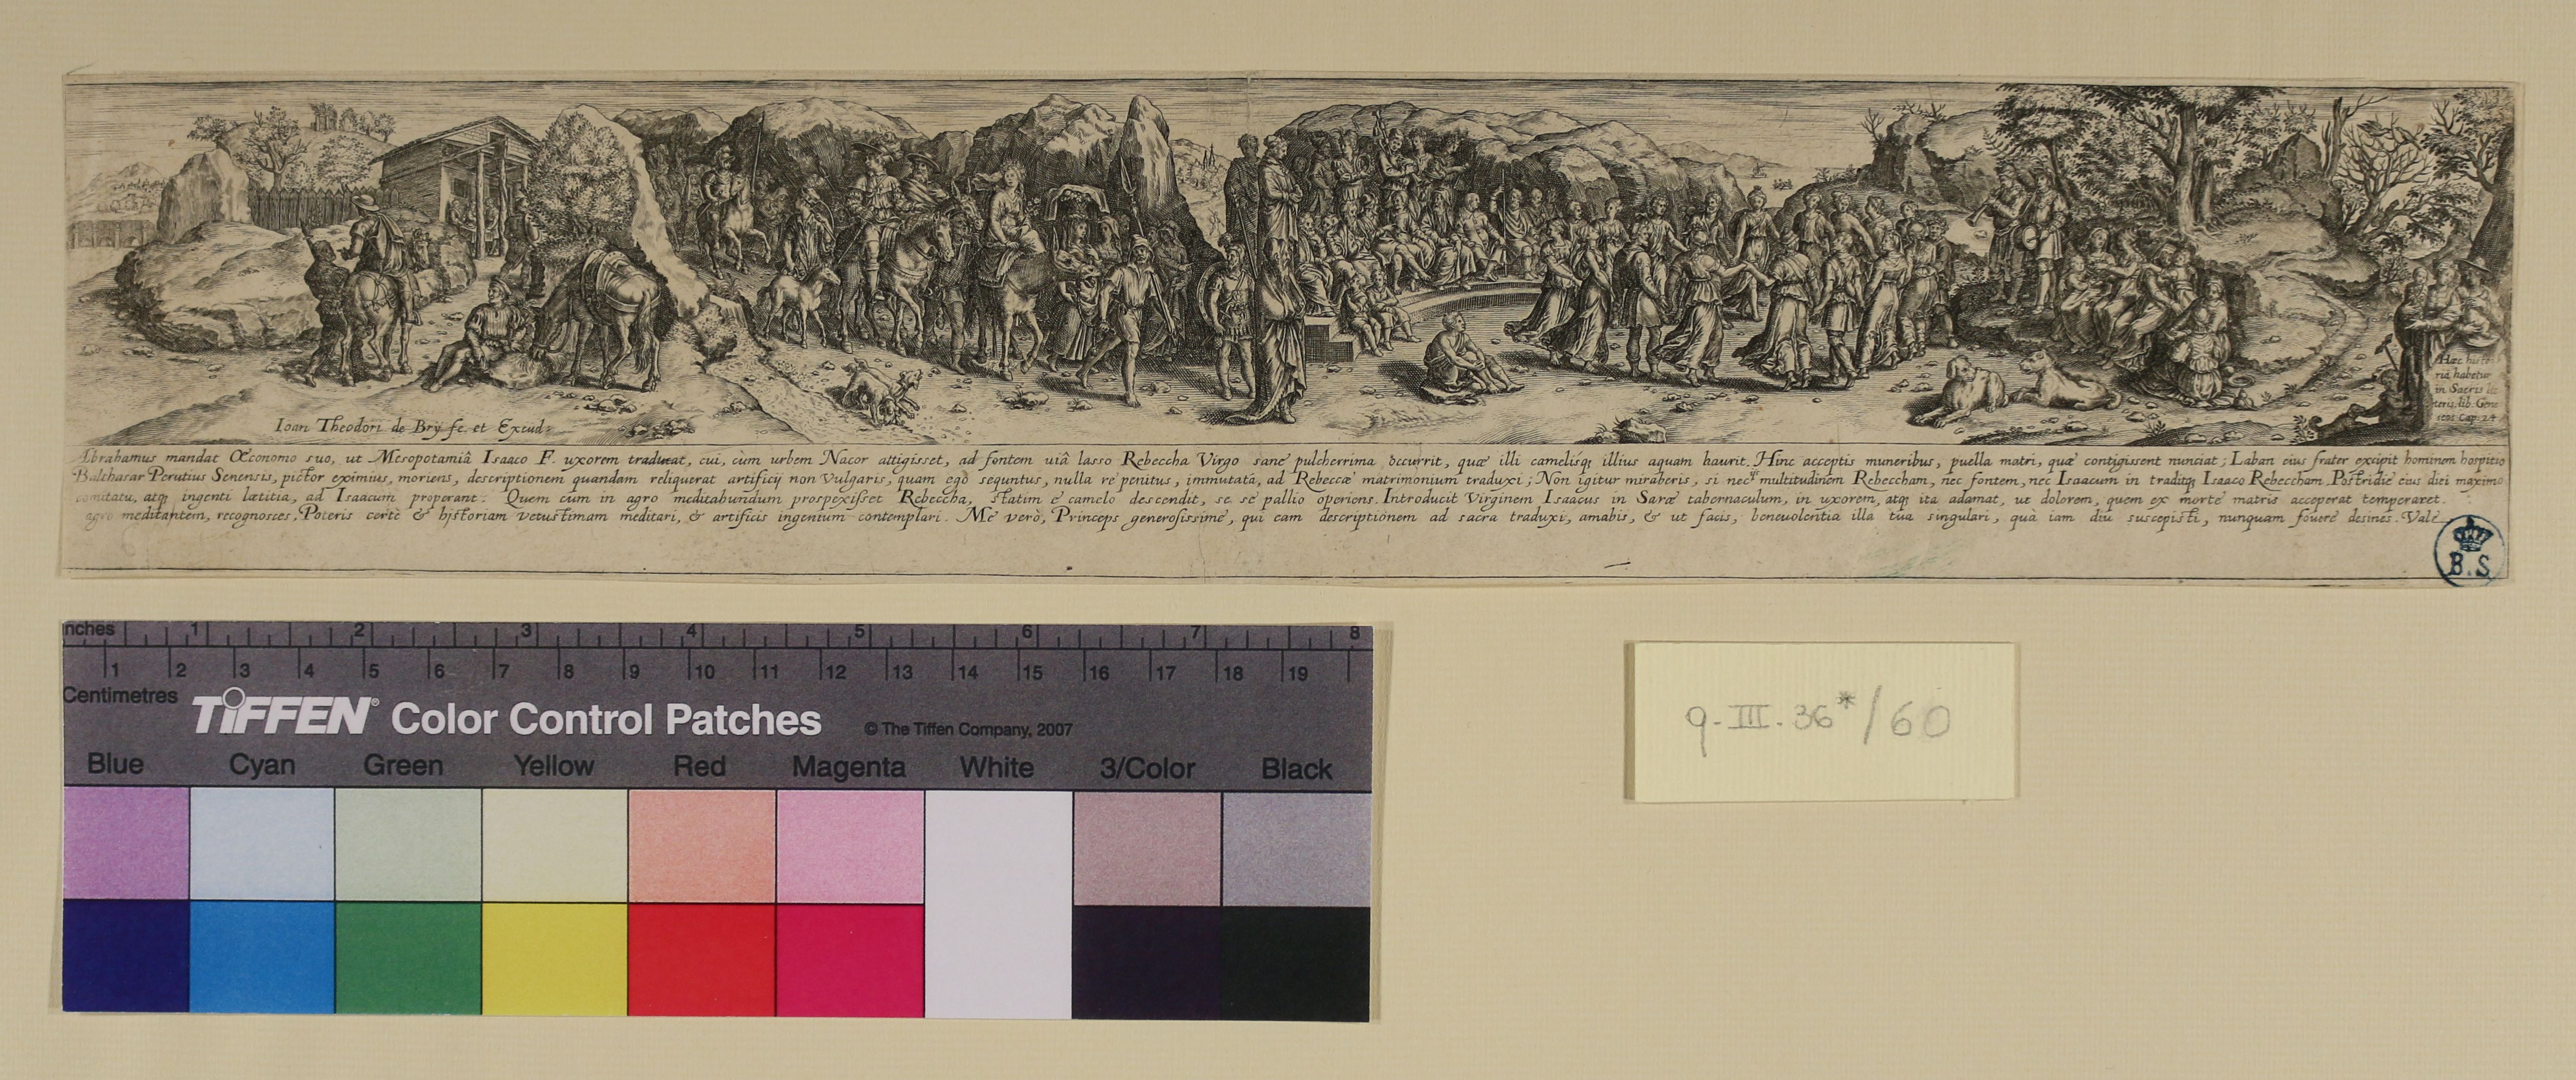 Ioan Theodori de Brÿ fe. et Excud:
Hæc histo
ria habetur
in Sacris lit
teris, lib. Gene
seos Cap. 24
Abrahamus mandat Œconomo suo, ut Mesopotamiâ Isaaco F. uxorem traducat, cui, cùm urbem Nacor attigisset, ad fontem uiâ lasso Rebeccha Virgo sanè pulcherrima occurrit, quæ illi camelisq; illius aquam haurit. Hinc acceptis muneribus, puella matri, quæ contigissent nunciat; Laban eius frater excipit hominem hospitio
Balthasar Perutius Senensis, pictor eximius, moriens, descriptionem quandam reliquerat artificij non vulgaris, quam egò sequutus, nulla re penitus, immutatâ, ad Rebeccæ matrimonium traduxi; Non igitur miraberis, si nec multitudinem Rebeccham, nec fontem, nec Isaacum in traditq; Isaaco Rebeccham. Postridie eius diei maximo
comitatu, atq; ingenti lætitia, ad Isaacum properant. Quem cùm in agro meditabundum prospexisset Rebeccha, statim è camelo descendit, se se pallio operiens. Introducit Virginem Isaacus in Saræ tabernaculum, in uxorem, atq; ita adamat, ut dolorem, quem ex morte matris acceperat temperaret.
agro meditantem, recognosces, Poteris certè & historiam vetustimam meditari, & artificis ingenium contemplari. Me verò, Princeps generosissime, qui eam descriptionem ad sacra traduxi, amabis, & ut facis, beneuolentia illa tua singulari, quâ iam diu suscepisti, nunquam fouere desines. Vale
B. S
nches 1 2 3 4 5 6 7 8
1 2 3 4 5 6 7 8 9 10 11 12 13 14 15 16 17 18 19
Centimetres
TIFFEN® Color Control Patches © The Tiffen Company, 2007
Blue Cyan Green Yellow Red Magenta White 3/Color Black
q-III-36*/60